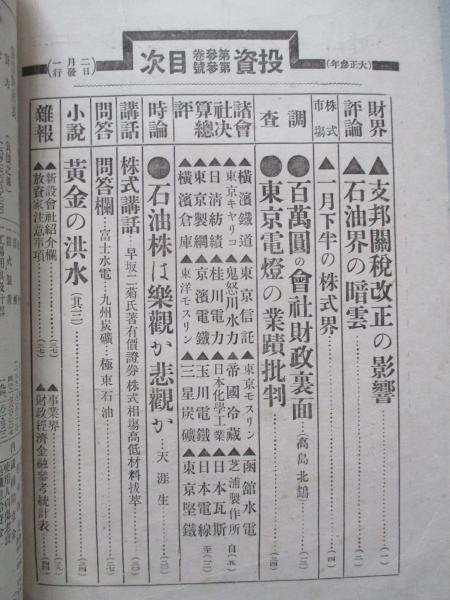 （大正參年）
投資
第參卷
第參號
目次
（二月一日發行）
財界評論
▲支邦關稅改正の影響（一）
▲石油界の暗雲（二）
株式市場
▲一月下半の株式界（四）
調査
●百萬圓の會社財政裏面…（高島北鷗）…（二三）
●東京電燈の業蹟批判（三四）
諸會社決算總評
▲橫濱鐵道▲東京信託▲東京モスリン▲函館水電
▲東京キヤリコ▲鬼怒川水力▲帝國冷藏▲芝浦製作所
▲日淸紡績▲桂川電力▲日本化學工業▲日本瓦斯
▲東京製綱▲京濱電鐵▲玉川電鐵▲日本電線
▲橫濱倉庫▲東洋モスリン▲三星炭礦▲東京堅鐵
自（五）至（三）
時論
●石油株は樂觀か悲觀か…天涯生…（三）
講話
株式講話…早坂二菊氏著有價證券株式相塲高低材料拔萃（三〇）
問答
問答欄…富士水電…九州炭礦…極東石油（二七）
小說
黃金の洪水（其三）（三四）
雜報
▲新設會社紹介欄（三七）▲事業界（三九）
▲放資家注意事項（三七）▲財政經濟金融參考統計表（四四）